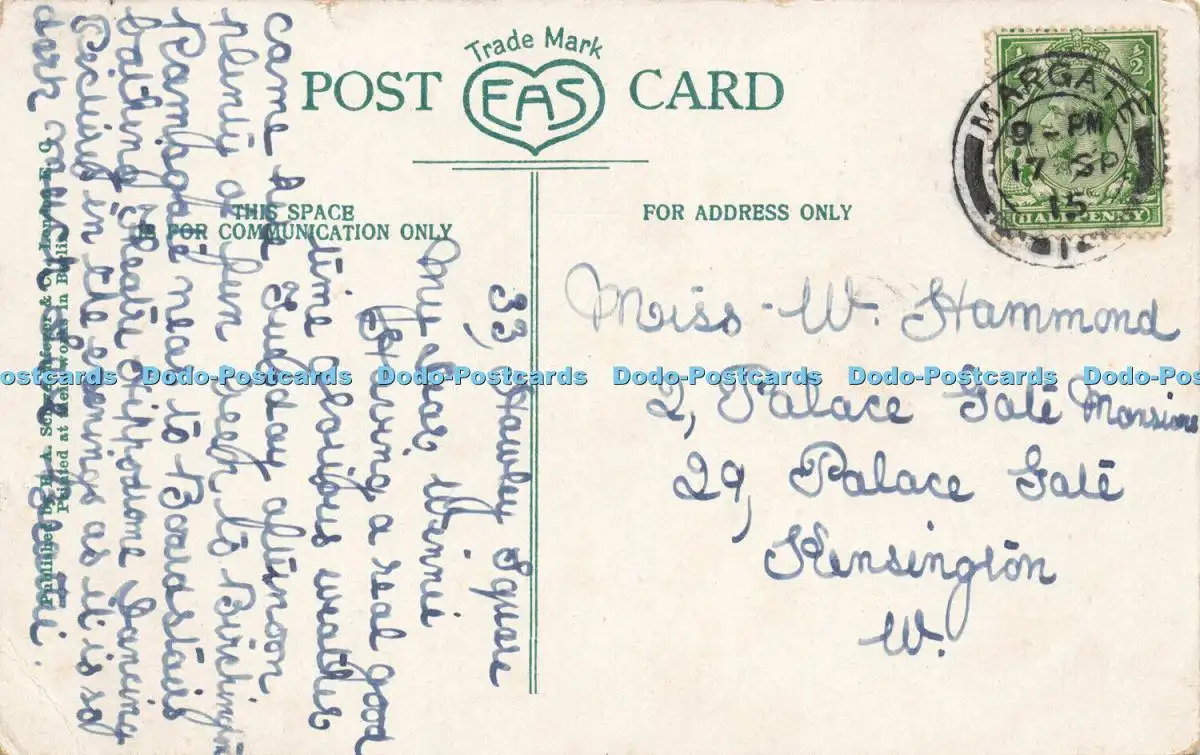 Trade Mark
POST EAS CARD
THIS SPACE
IS FOR COMMUNICATION ONLY
FOR ADDRESS ONLY
½ ½
HALFPENNY
MARGATE
9 - PM
17 SP
15
Miss W. Hammond
2, Palace Gate Mansions
29, Palace Gate
Kensington
W.
33, Hawley Square
My Dear Winnie
Having a real good
time glorious weather
came here Tuesday afternoon
plenty of fun been to Birchington
Ramsgate near to Broadstairs
bathing Theatre Hippodrome Dancing
in the evenings as it is so
dark
Published by E. A. Schwerdtfeger & Co., London, E.C.
Printed at their works in Berlin
Dodo-Postcards Dodo-Postcards Dodo-Postcards Dodo-Postcards Dodo-Postcards Dodo-Postcards